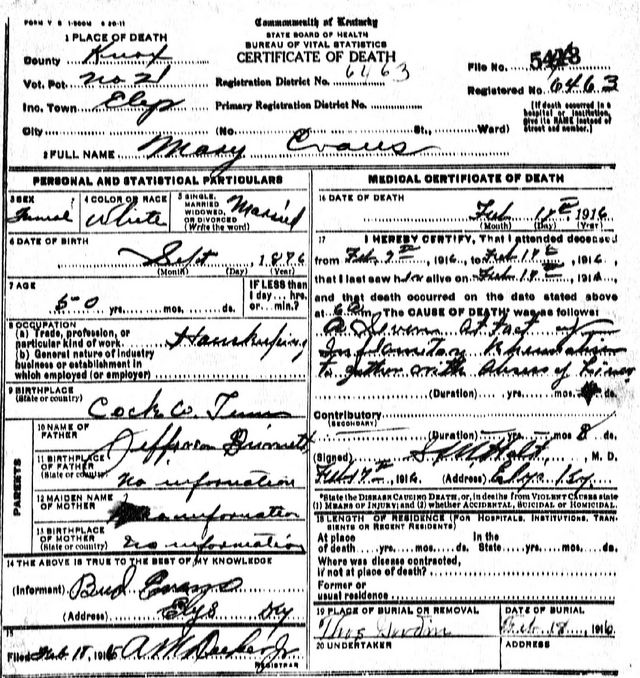 FORM V S 1-500M 6 20-11
Commonwealth of Kentucky
STATE BOARD OF HEALTH
BUREAU OF VITAL STATISTICS
CERTIFICATE OF DEATH
1 PLACE OF DEATH
County Knox
Vot. Pct. No 21
Inc. Town Elys
City (No. St., Ward)
Registration District No. 6463
Primary Registration District No.
File No. 5423
Registered No. 6463
[If death occurred in a hospital or institution, give its NAME instead of street and number.]
2 FULL NAME Mary Evans
PERSONAL AND STATISTICAL PARTICULARS
3 SEX Femal
4 COLOR OR RACE White
5 SINGLE, MARRIED WIDOWED, OR DIVORCED (Write the word) Married
6 DATE OF BIRTH
Sept 1876
(Month) (Day) (Year)
7 AGE
50 yrs. mos. ds.
IF LESS than 1 day... hrs. or min.?
8 OCCUPATION
(a) Trade, profession, or particular kind of work
(b) General nature of industry business or establishment in which employed (or employer)
9 BIRTHPLACE
(State or country)
Cock Co. Tenn
10 NAME OF FATHER Jefferson
11 BIRTHPLACE OF FATHER (State or country) no information
12 MAIDEN NAME OF MOTHER information
13 BIRTHPLACE OF MOTHER (State or country) no information
PARENTS
14 THE ABOVE IS TRUE TO THE BEST OF MY KNOWLEDGE
(Informant) Bud Evans
(Address) Elys Ky
15
Filed Feb 18, 1916 A M Decker Jr
REGISTRAR
MEDICAL CERTIFICATE OF DEATH
16 DATE OF DEATH
Feb 1916
(Month) (Day) (Year)
17 I HEREBY CERTIFY, That I attended deceased
from Feb 1916, to Feb 1916,
that I last saw her alive on Feb 1916
and that death occurred on the date stated above
at The CAUSE OF DEATH was as follows:
A Severe Attact of
Inflamitory Rheumatism
together with Absess of Liver
(Duration) yrs. mos. ds.
Contributory
(SECONDARY)
(Duration) yrs. mos. 8 ds.
(Signed) Holt, M. D.
Feb 17th, 1916 (Address) Elys Ky
*State the DISEASE CAUSING DEATH, or, in deaths from VIOLENT CAUSES state (1) MEANS OF INJURY; and (2) whether ACCIDENTAL, SUICIDAL or HOMICIDAL.
18 LENGTH OF RESIDENCE (FOR HOSPITALS, INSTITUTIONS, TRANSIENTS OR RECENT RESIDENTS)
At place of death yrs. mos. ds. In the State yrs. mos. ds.
Where was disease contracted, if not at place of death?
Former or usual residence
19 PLACE OF BURIAL OR REMOVAL
Thos
DATE OF BURIAL
Feb 18, 1916
20 UNDERTAKER
ADDRESS